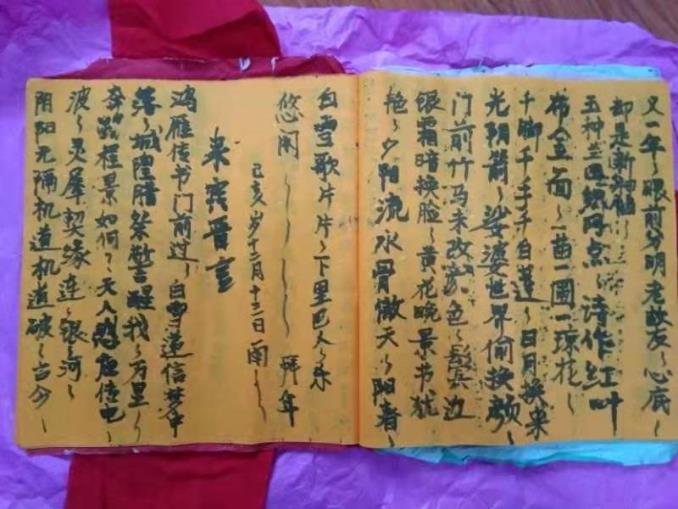 又一年~眼前分明老故友~心底~
却是新神仙~
点~诗作红叶
布金面~一菌一圃一琼花~
千脚千手千白莲~日月换来
光阴箭~娑婆世界偷换颜~
门前竹马未改色~鬓边
银霜暗换脸~黄花晚景节犹
艳~夕阳流水骨傲天~阳春~
白雪歌片片~下里巴人~乐
悠闲~~~~~ 拜年
己亥岁十二月十三日 南~~
来宾晋言
鸿雁传书门前过~白雪莲信梦中
落~城隍腊祭警醒我~万里~
奔路程景如何?~天人感应传电~
波~灵犀契缘连~银河~
阴阳无隔机道机道破~古今~